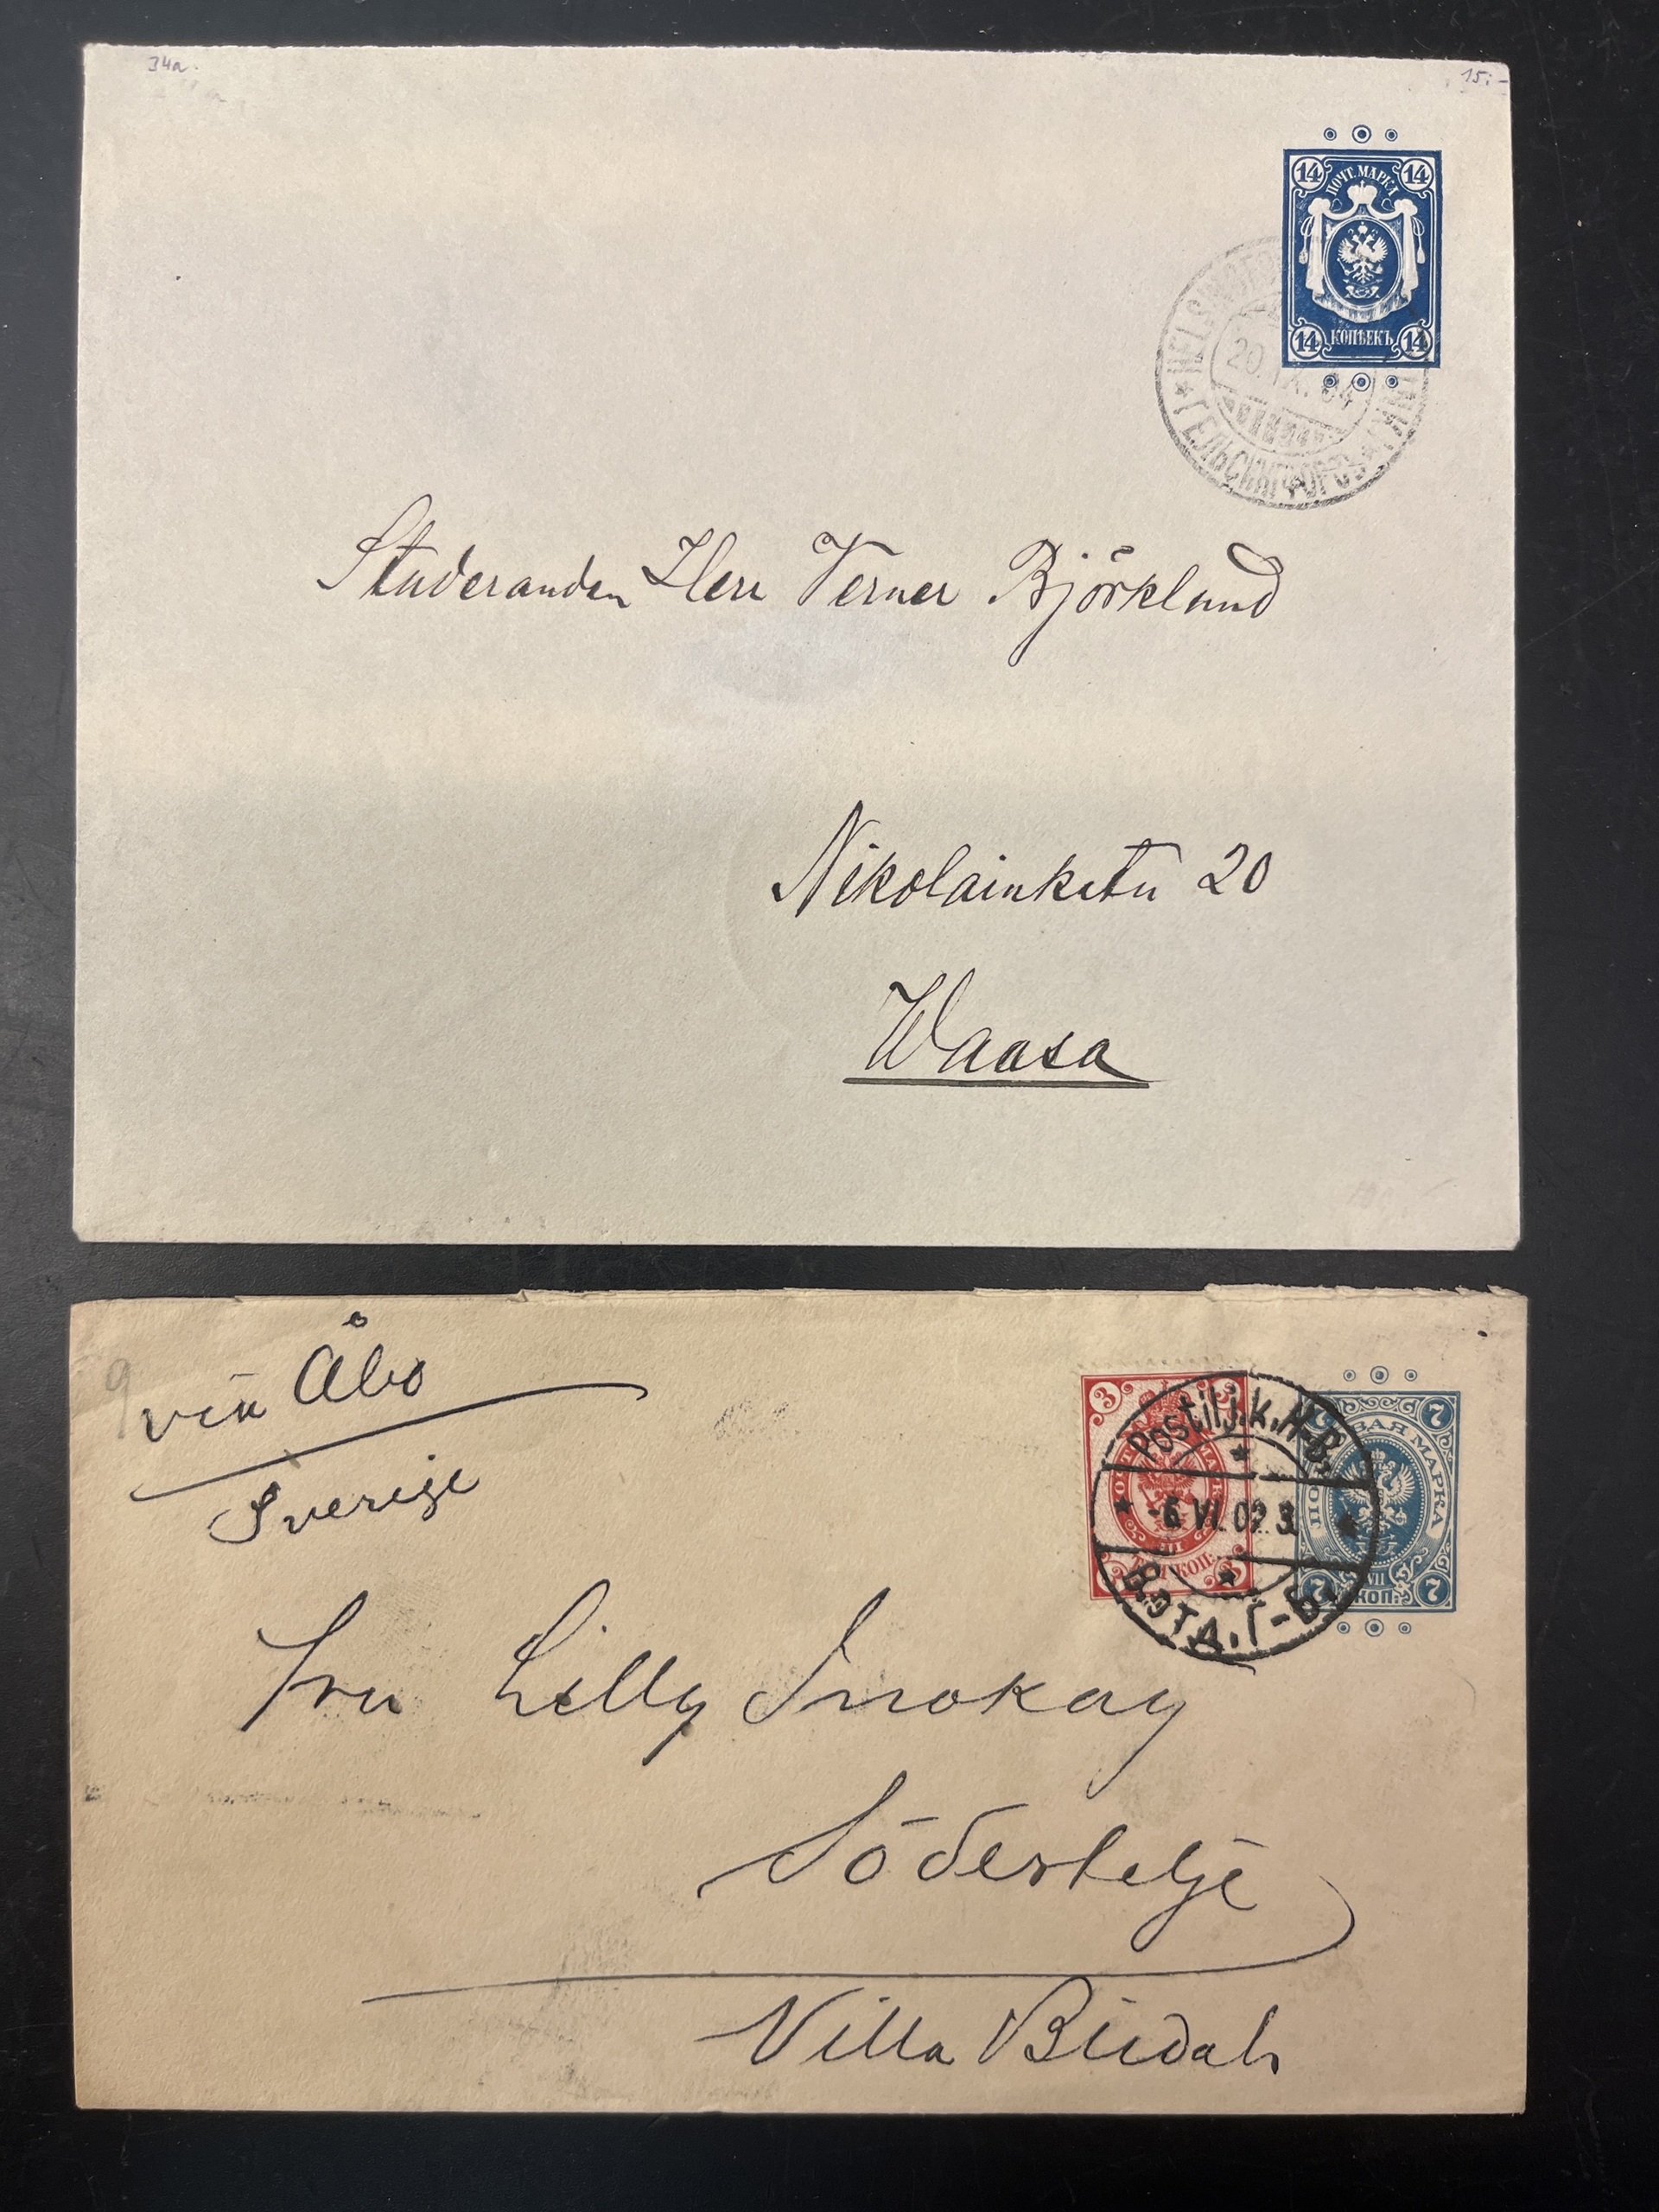 34a.
15:-
14 14
ПОЧТ. МАРКА
14 КОПѢЕКЪ 14
20. IX. 04
ГЕЛЬСИНГФОРСЪ
Studeranden Herr Verner Björklund
Nikolainkatu 20
Waasa
9
via Åbo
Sverige
3
7
МАРКА
Postilj.k.H-B.
-6.VI.02.3.
КОП.
7 VII КОП. 7
Fru Lilly Smokay
Södertelje
Villa Blidah